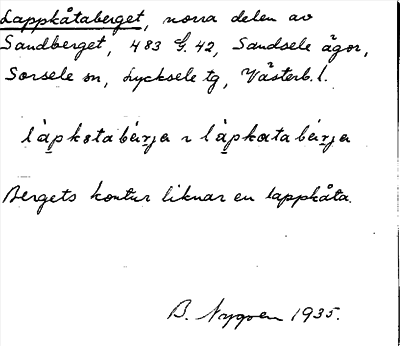 Lappkåtaberget, norra delen av
Sandberget, 483 G. 42, Sandsele ägor,
Sorsele sn, Lycksele tg, Västerb. l.
Bergets kontur liknar en lappkåta.
B. Nygren 1935.